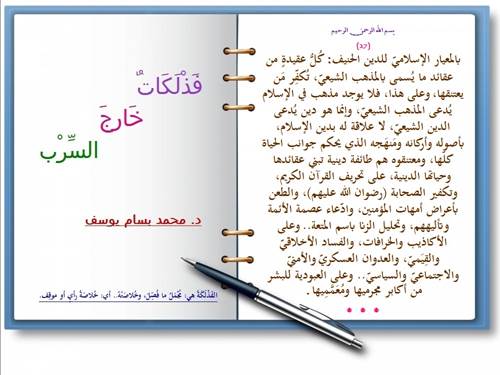 بسم الله الرحمن الرحيم
(27)
بالمعيار الإسلاميّ للدين الحنيف: كُلُّ عقيدةٍ من
عقائد ما يُسمى بالمذهب الشيعيّ، تُكفِّر مَن
يعتنقها، وعلى هذا، فلا يوجد مذهب في الإسلام
يُدعى المذهب الشيعيّ، وإنما هو دين يُدعى
الدين الشيعيّ، لا علاقة له بدين الإسلام،
بأصوله وأركانه ومَنهَجه الذي يحكم جوانب الحياة
كلّها، ومعتنقوه هم طائفة دينية تبني عقائدها
وحياتها الدينية، على تحريف القرآن الكريم،
وتكفير الصحابة (رضوان الله عليهم)، والطعن
بأعراض أمهات المؤمنين، وادّعاء عصمة الأئمة
وتأليههم، وتحليل الزنا باسم المتعة.. وعلى
الأكاذيب والخرافات، والفساد الأخلاقيّ
والقِيَميّ، والعدوان العسكريّ والأمنيّ
والاجتماعيّ والسياسيّ.. وعلى العبودية للبشر
من أكابر مجرميها ومُعَمَّميها.
فَذْلَكَاتٌ
خَارِجَ
السِّرْب
د. محمد بسام يوسف
الفَذْلَكَةُ هي: مُجْمَلُ ما فُصِّلَ، وخُلاصَتُهُ.. أي: خُلاصَةُ رأيٍ أو موقِفٍ.